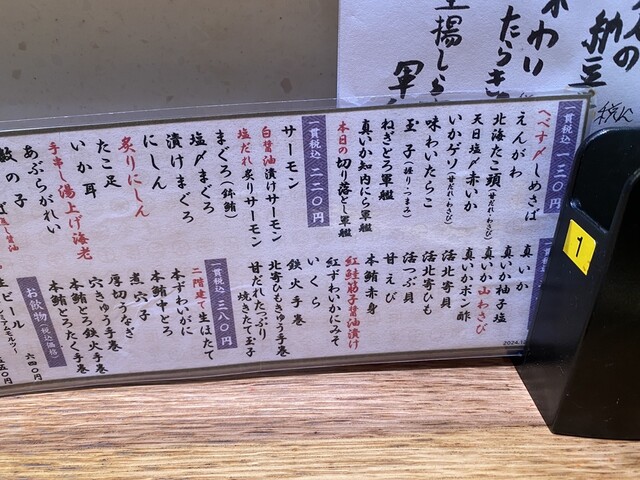 一貫税込 一三〇円
べべす〆しめさば
えんがわ
北海たこ頭(甘だれ・わさび)
天日塩〆赤いか
いかゲソ(甘だれ・わさび)
味わいたらこ
玉子(握り・つまみ)
ねぎとろ軍艦
真いか知内にら軍艦
本日の切り落とし軍艦
一貫税込 二二〇円
サーモン
白醤油漬けサーモン
塩だれ炙りサーモン
まぐろ(鉢鮪)
塩〆まぐろ
漬けまぐろ
にしん
炙りにしん
たこ足
いか耳
手串し湯上げ海老
あぶらがれい
数の子
真いか
真いか柚子塩
真いか山わさび
真いかポン酢
活北寄貝
活北寄ひも
活つぶ貝
甘えび
本鮪赤身
紅鮭筋子醤油漬け
紅ずわいかにみそ
いくら
鉄火手巻
北寄ひもきゅう手巻
甘だれたっぷり
焼きたて玉子
一貫税込 三八〇円
二階建て生ほたて
本ずわいがに
本鮪中とろ
煮穴子
厚切りうなぎ
穴きゅう手巻
本鮪とろ鉄火手巻
本鮪とろたく手巻
お飲物(税込価格)
六四〇円
納豆
味わい
たらき
軍
税込
1